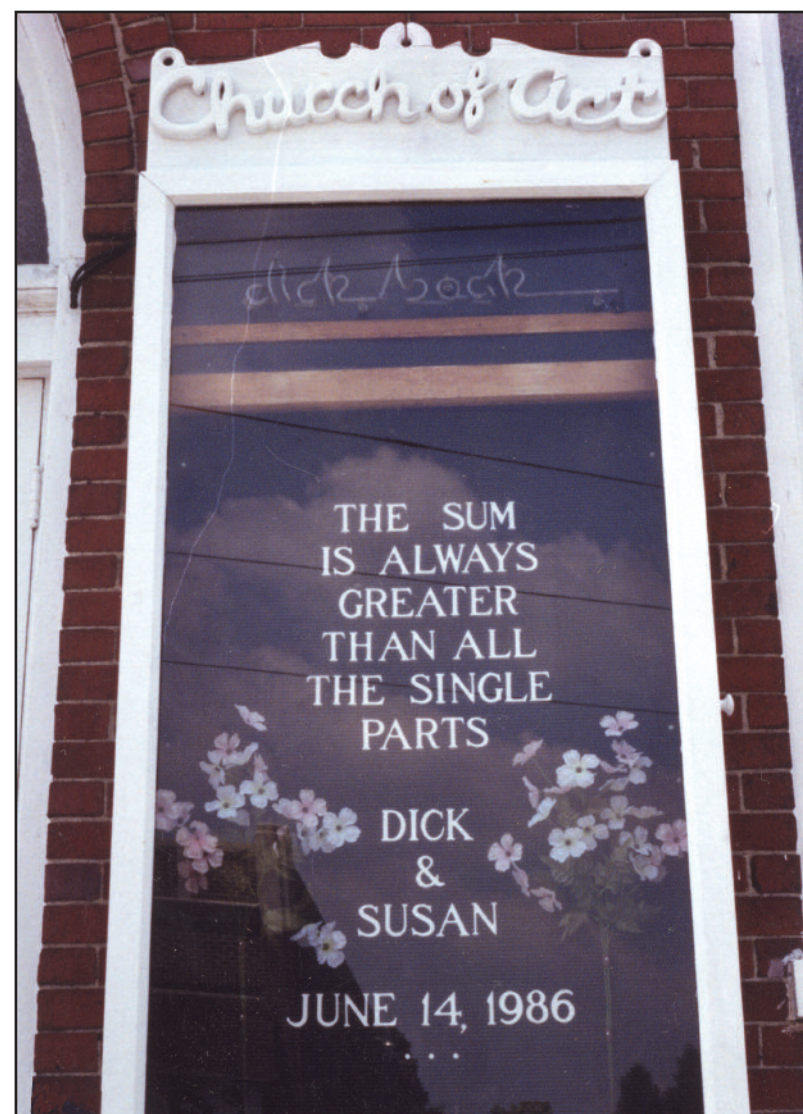 Church of Art
dick
THE SUM
IS ALWAYS
GREATER
THAN ALL
THE SINGLE
PARTS
DICK
&
SUSAN
JUNE 14, 1986
...